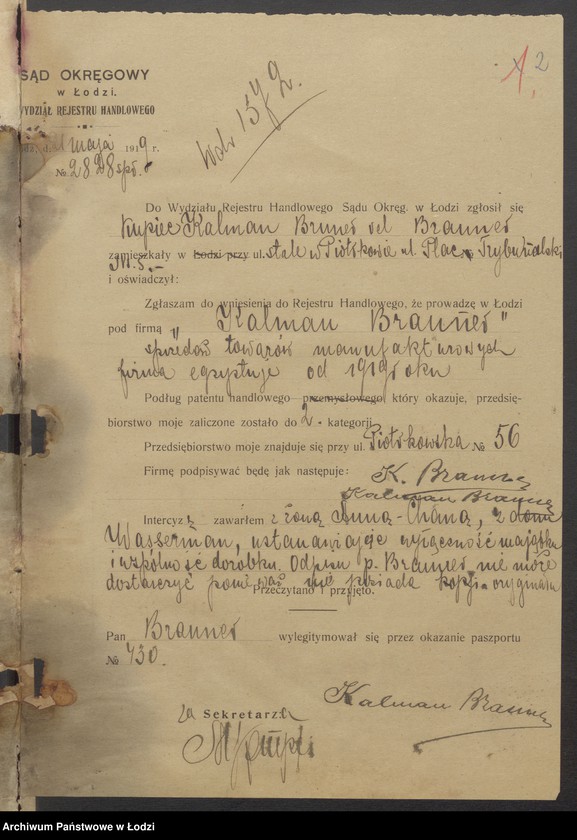 SĄD OKRĘGOWY
w Łodzi.
WYDZIAŁ REJESTRU HANDLOWEGO
maja 1919 r.
№ 2828
2
1.
Do Wydziału Rejestru Handlowego Sądu Okręg. w Łodzi zgłosił się
kupiec Kalman Bruner vel Brauner
zamieszkały w Łodzi przy ul. stale w Piotrkowie ul. Plac Trybunalski
№ 5.-
i oświadczył:
Zgłaszam do wniesienia do Rejestru Handlowego, że prowadzę w Łodzi
pod firmą „Kalman Brauner"
sprzedaż towarów manufakturowych
firma egzystuje od 1919 roku
Podług patentu handlowego przemysłowego który okazuje, przedsię-
biorstwo moje zaliczone zostało do 2. kategorji
Przedsiębiorstwo moje znajduje się przy ul. Piotrkowska № 56
Firmę podpisywać będę jak następuje: K. Brauner
Kalman Brauner
Intercyzę zawarłem z żoną Anną-Chaną, z domu
Wasserman, ustanawiające wyłączność majątku
i wspólność dorobku. Odpisu p. Brauner nie może
dostarczyć ponieważ nie posiada kopji oryginału
Przeczytano i przyjęto.
Pan Brauner wylegitymował się przez okazanie paszportu
№ 430.
Kalman Brauner
za Sekretarza
Archiwum Państwowe w Łodzi